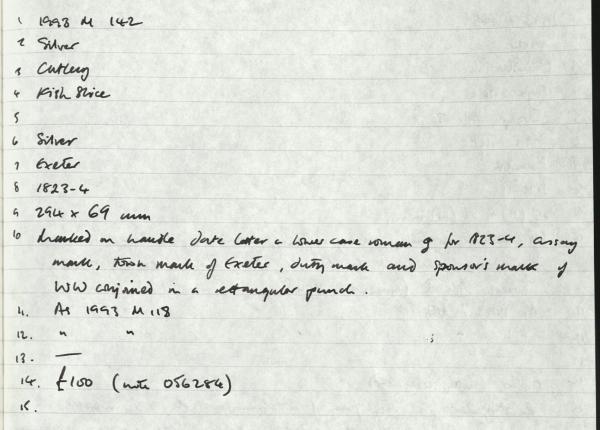 1 1993 M 142
2 Silver
3 Cutlery
4 Fish Slice
5
6 Silver
7 Exeter
8 1823-4
9 294 x 69 mm
10 Marked on handle date letter a lower case roman g for 1823-4, assay
mark, town mark of Exeter, duty mark and sponsor's mark of
WW conjoined in a rectangular punch.
11. As 1993 M 118
12. " "
13. —
14. £100 (note 056284)
15.